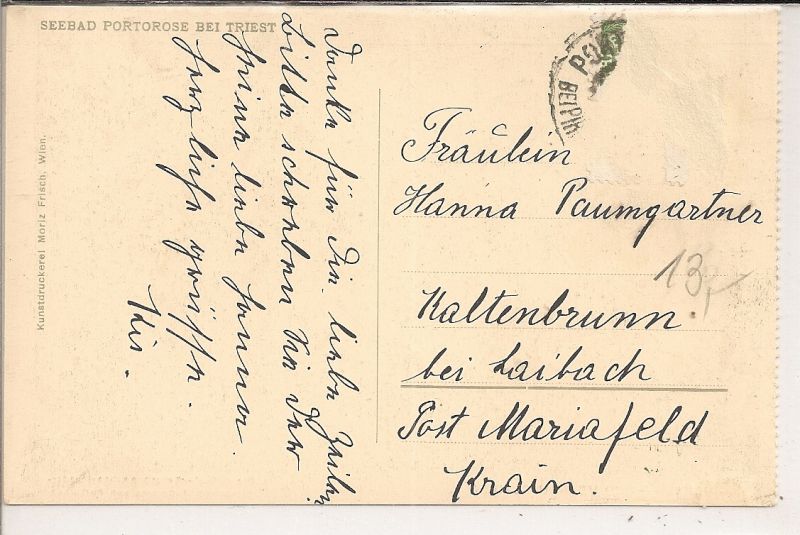 SEEBAD PORTOROSE BEI TRIEST
Kunstdruckerei Moriz Frisch, Wien.
Danke für die liebe Zeilen
bitte schreiben Sie
meine liebe Hanna.
herzliche Grüsse.
Fräulein
Hanna Paumgartner
Kaltenbrunn.
bei Laibach
Post Mariafeld
Krain.
13,-